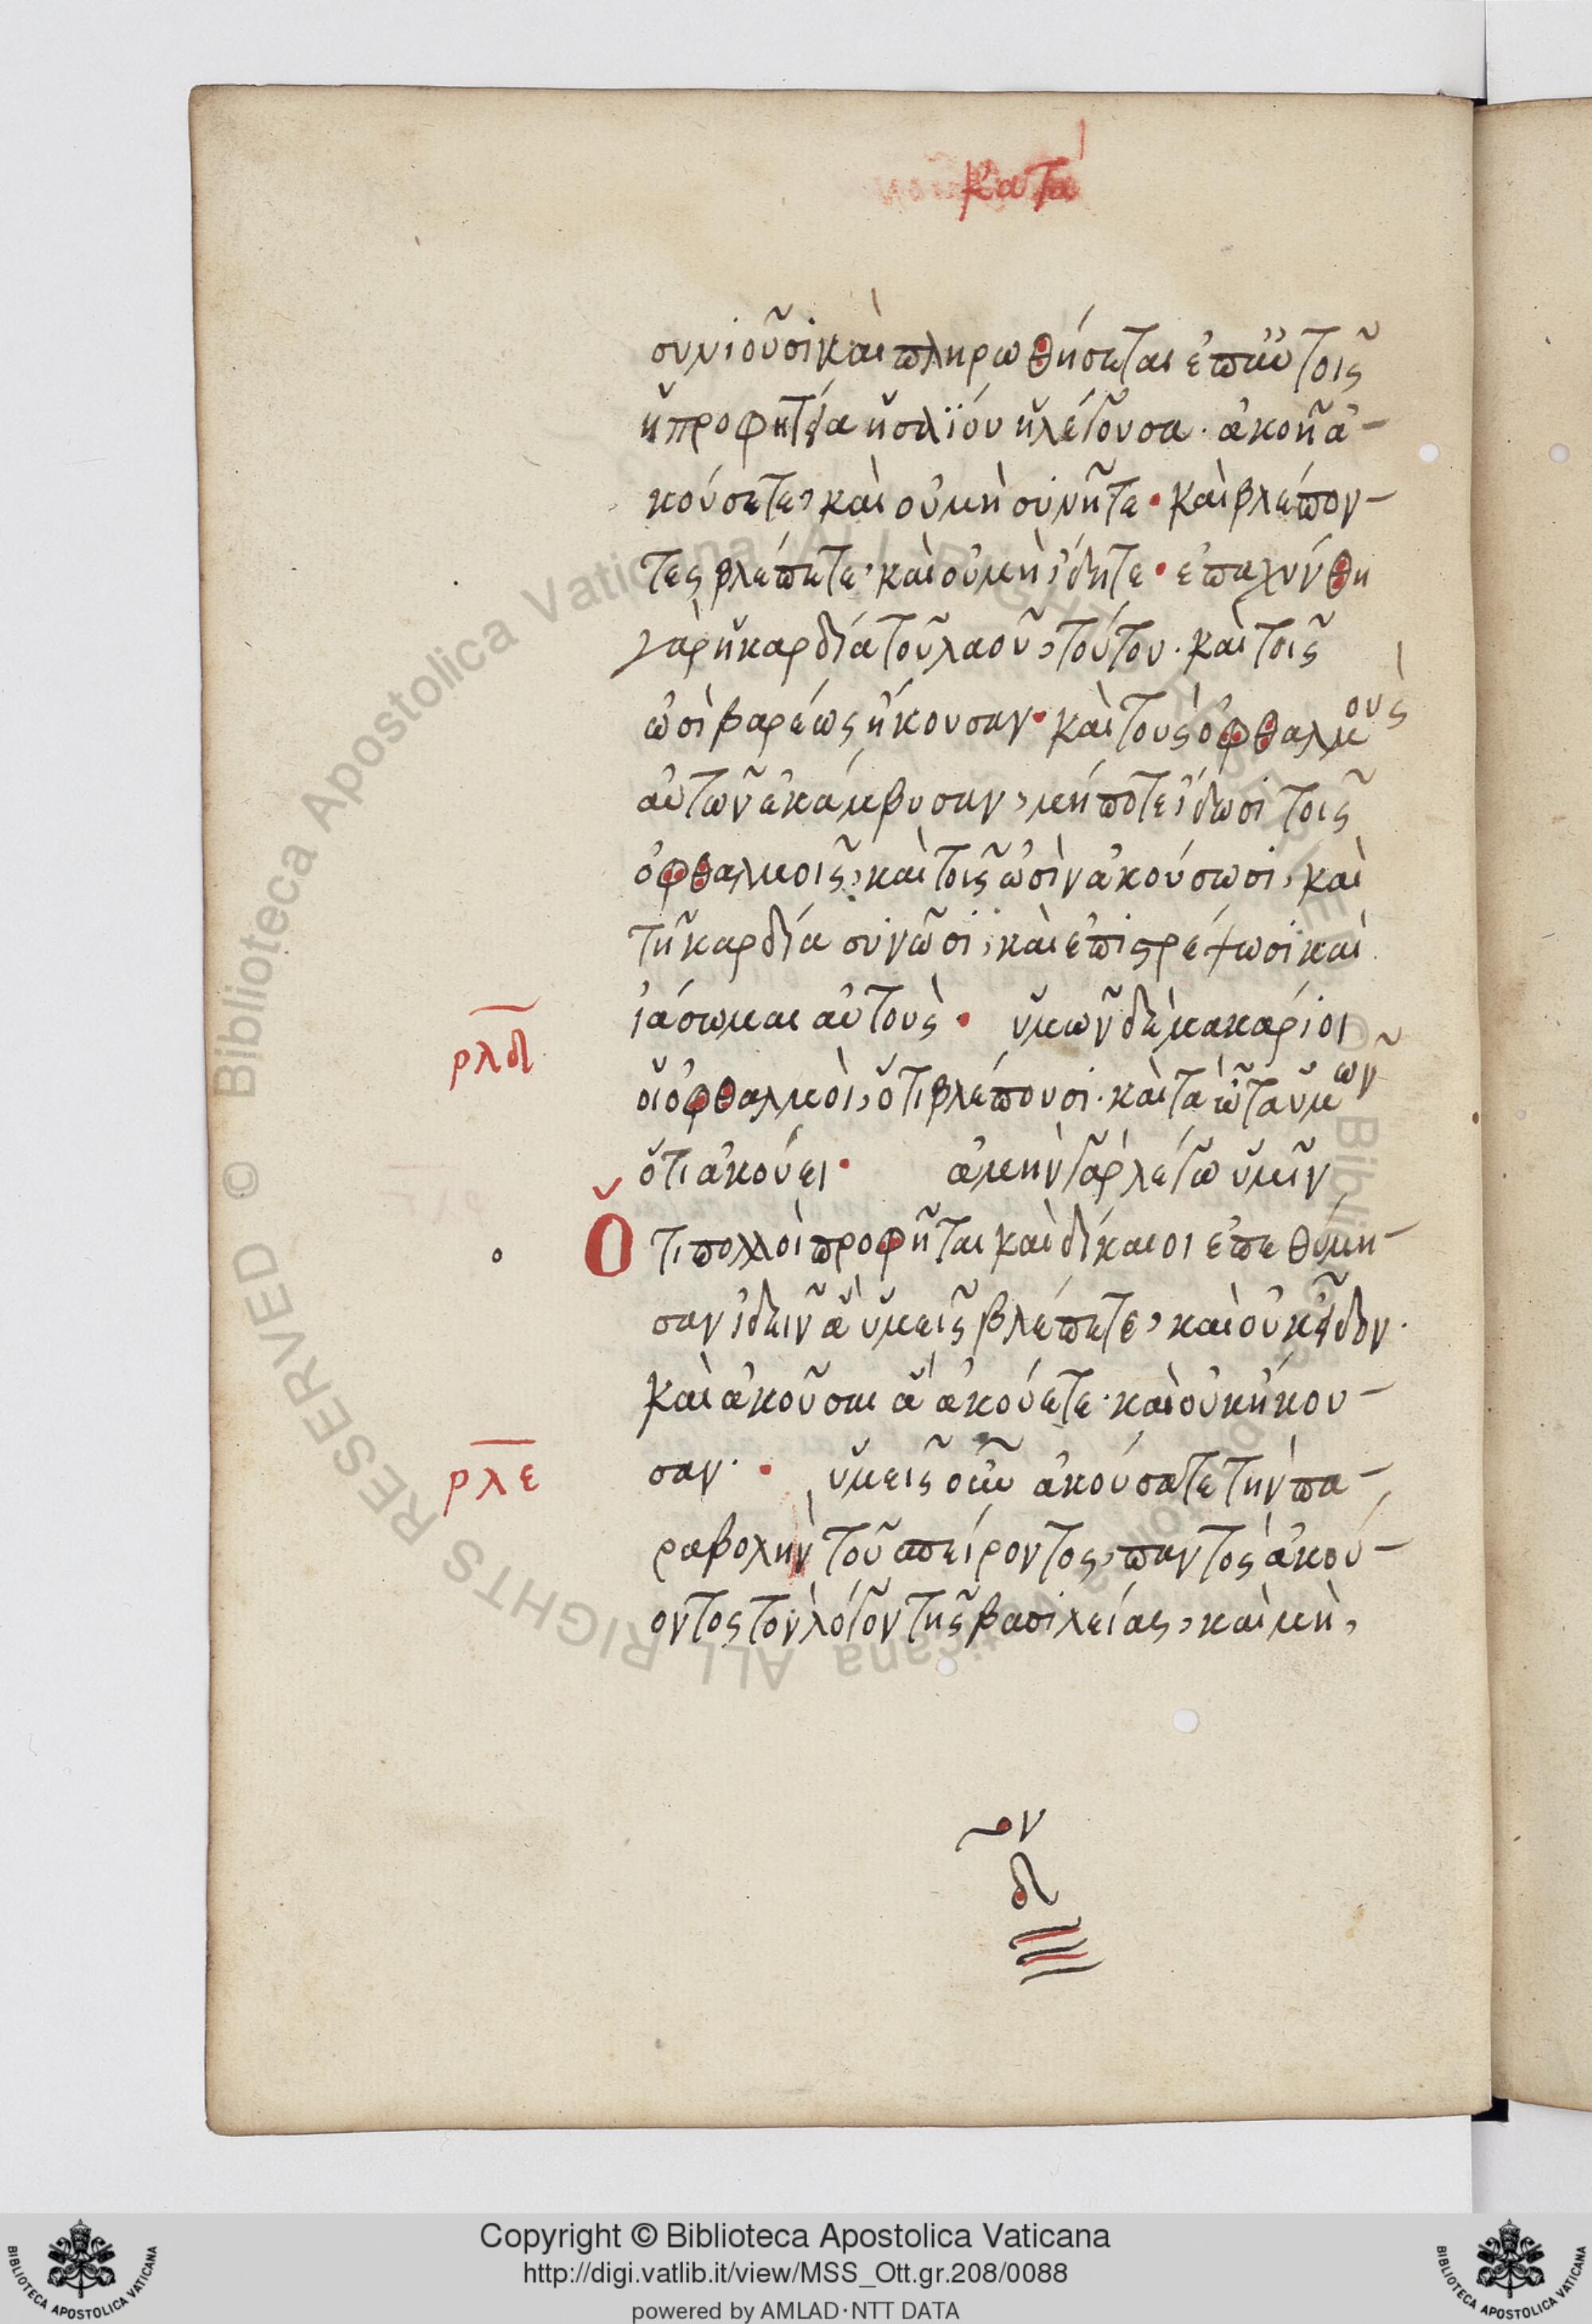 κατὰ
συνιοῦσι καὶ πληρωθήσεται ἐπ' αὐτοῖς
ἡ προφητεία ἡσαΐου ἡ λέγουσα· ἀκοῇ ἀ-
κούσετε, καὶ οὐ μὴ συνῆτε· καὶ βλέπον-
τες βλέπετε· καὶ οὐ μὴ ἴδητε· ἐπαχύνθη
γὰρ ἡ καρδία τοῦ λαοῦ, τούτου· καὶ τοῖς
ὠσὶ βαρέως ἤκουσαν· καὶ τοὺς ὀφθαλμοὺς
αὐτῶν ἐκάμβυσαν, μήποτε ἴδωσι τοῖς
ὀφθαλμοῖς, καὶ τοῖς ὠσὶν ἀκούσωσι, καὶ
τῇ καρδία συνῶσι, καὶ ἐπιστρέψωσι καὶ
ρλδ ἰάσωμαι αὐτοὺς· ὑμῶν δὲ μακάριοι
οἱ ὀφθαλμοὶ, ὅτι βλέπουσι· καὶ τὰ ὦτα ὑμῶν
ὅτι ἀκούει· ἀμὴν γὰρ λέγω ὑμῖν
Ὅτι πολλοὶ προφῆται καὶ δίκαιοι ἐπεθύμη-
σαν ἰδεῖν ἃ ὑμεῖς βλέπετε, καὶ οὐκ εἶδον·
καὶ ἀκοῦσαι ἃ ἀκούετε· καὶ οὐκ ἤκου-
ρλε σαν· ὑμεῖς οὖν ἀκούσατε τὴν πα-
ραβολὴν τοῦ σπείροντος, παντὸς ἀκού-
οντος τὸν λόγον τῆς βασιλείας, καὶ μὴ,
Copyright © Biblioteca Apostolica Vaticana
http://digi.vatlib.it/view/MSS_Ott.gr.208/0088
powered by AMLAD·NTT DATA